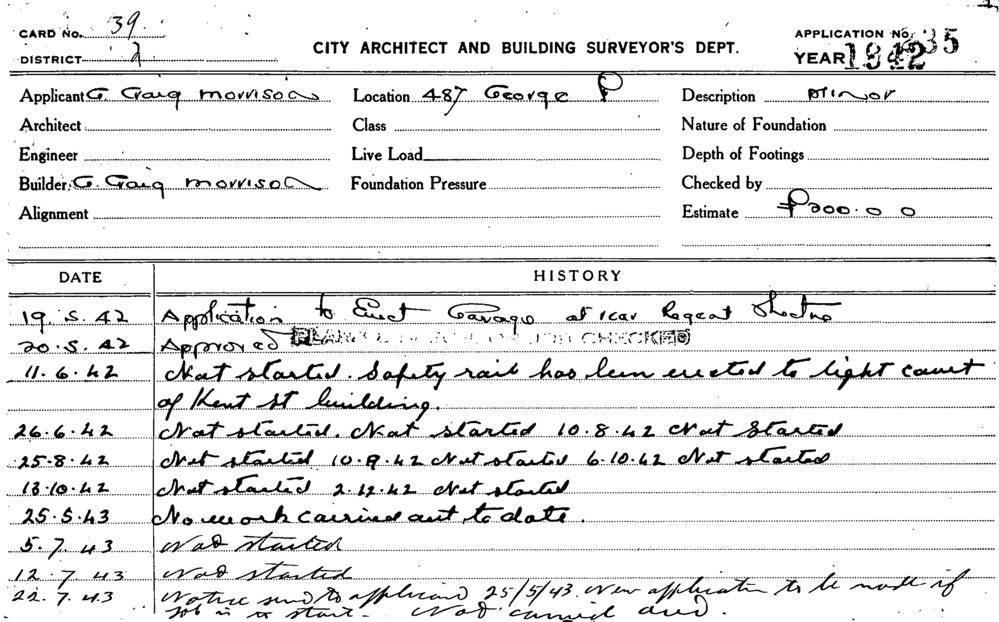 CARD No. 39.
DISTRICT 2
CITY ARCHITECT AND BUILDING SURVEYOR'S DEPT.
APPLICATION No. 35
YEAR 1942
Applicant G. Craig Morrison Location 487 George Description Minor
Architect Class Nature of Foundation
Engineer Live Load Depth of Footings
Builder G. Craig Morrison Foundation Pressure Checked by
Alignment Estimate £200.0.0
DATE HISTORY
19.5.42 Application to Erect Garage at rear Regent Theatre
20.5.42 Approved CHECKED
11.6.42 Not started. Safety rail has been erected to light court
of Kent St building.
26.6.42 Not started. Not started 10.8.42 Not Started
25.8.42 Not started 10.9.42 Not started 6.10.42 Not started
13.10.42 Not started 2.12.42 Not started
25.5.43 No work carried out to date.
5.7.43 Not started
12.7.43 Not started
22.7.43 Notice send to applicant 25/5/43. New application to be made if
job is to start. Not carried out.